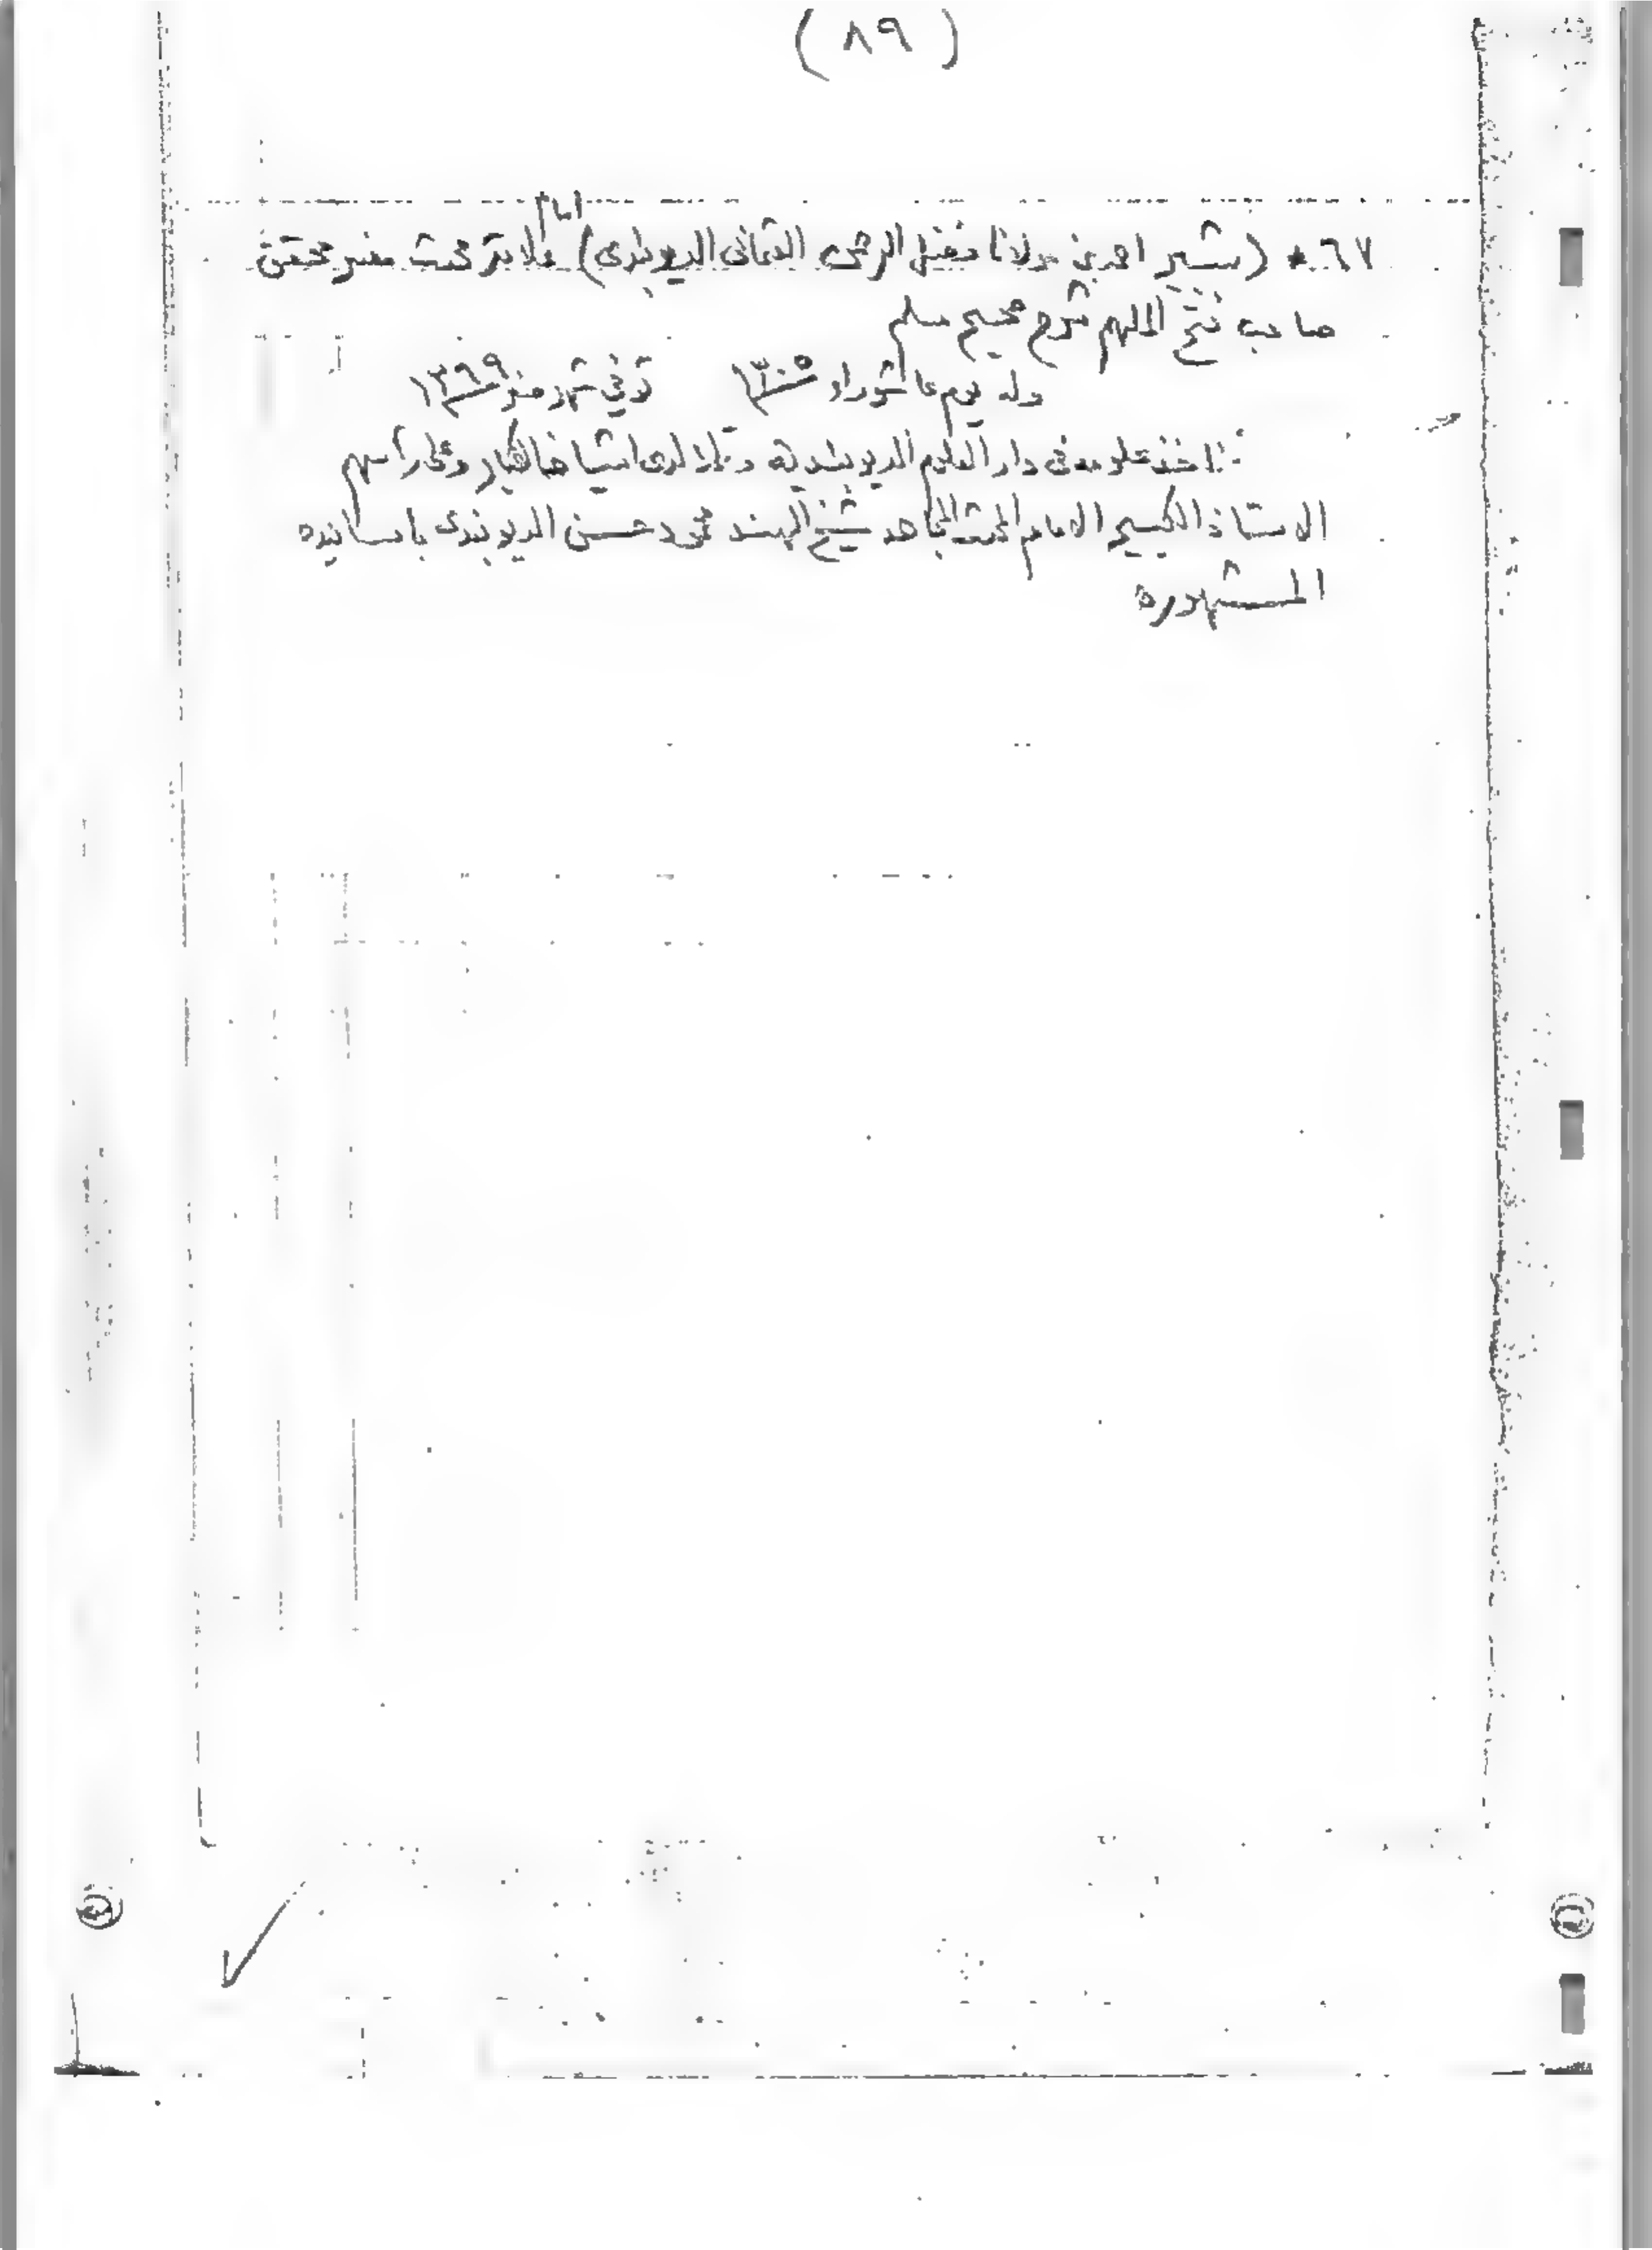 ( ٨٩ )
٦٧ * (شبير احمد بن مولانا فضل الرحمن العثمانى الديوبندى) امام علامة محدث مفسر محقق
صاحب فتح الملهم شرح صحيح مسلم
ولد يوم عاشوراء ١٣٠٥ توفي شهر صفر ١٣٦٩
اخذ علومه فى دار العلوم الديوبنديه لدى اشياخها الكبار وعلى رأسهم
الاستاذ الكبير الامام المحدث المجاهد شيخ الهند محمود حسن الديوبندى باسانيده
المشهوره